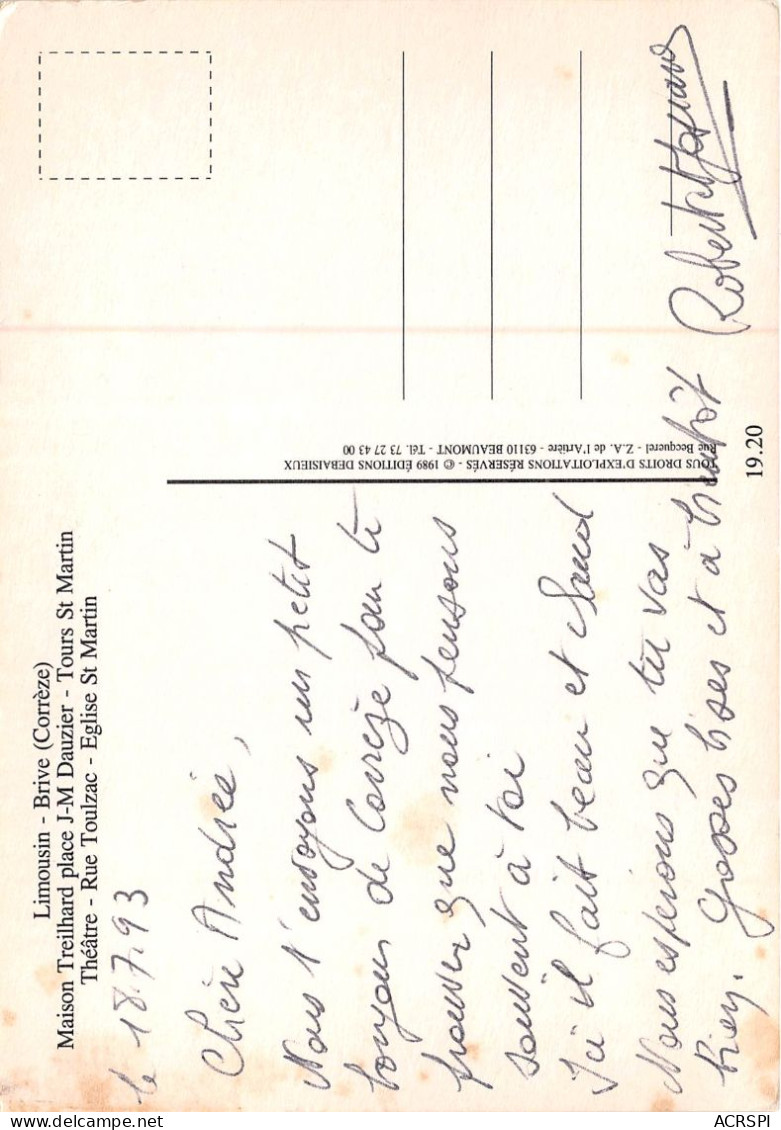 Limousin - Brive (Corrèze)
Maison Treilhard place J-M Dauzier - Tours St Martin
Théâtre - Rue Toulzac - Eglise St Martin
le 18.7.93
Chère Andrée,
Nous t'envoyons un petit
bonjour de Corrèze pour te
prouver que nous pensons
souvent à toi
Ici il fait beau et chaud
Nous espérons que tu vas
bien. Grosses bises et à bientôt
Robert
TOUS DROITS D'EXPLOITATIONS RÉSERVÉS - © 1989 ÉDITIONS DEBAISIEUX
Rue Becquerel - Z.A. de l'Artière - 63110 BEAUMONT - Tél. 73 27 43 00
19.20
ACRSPI